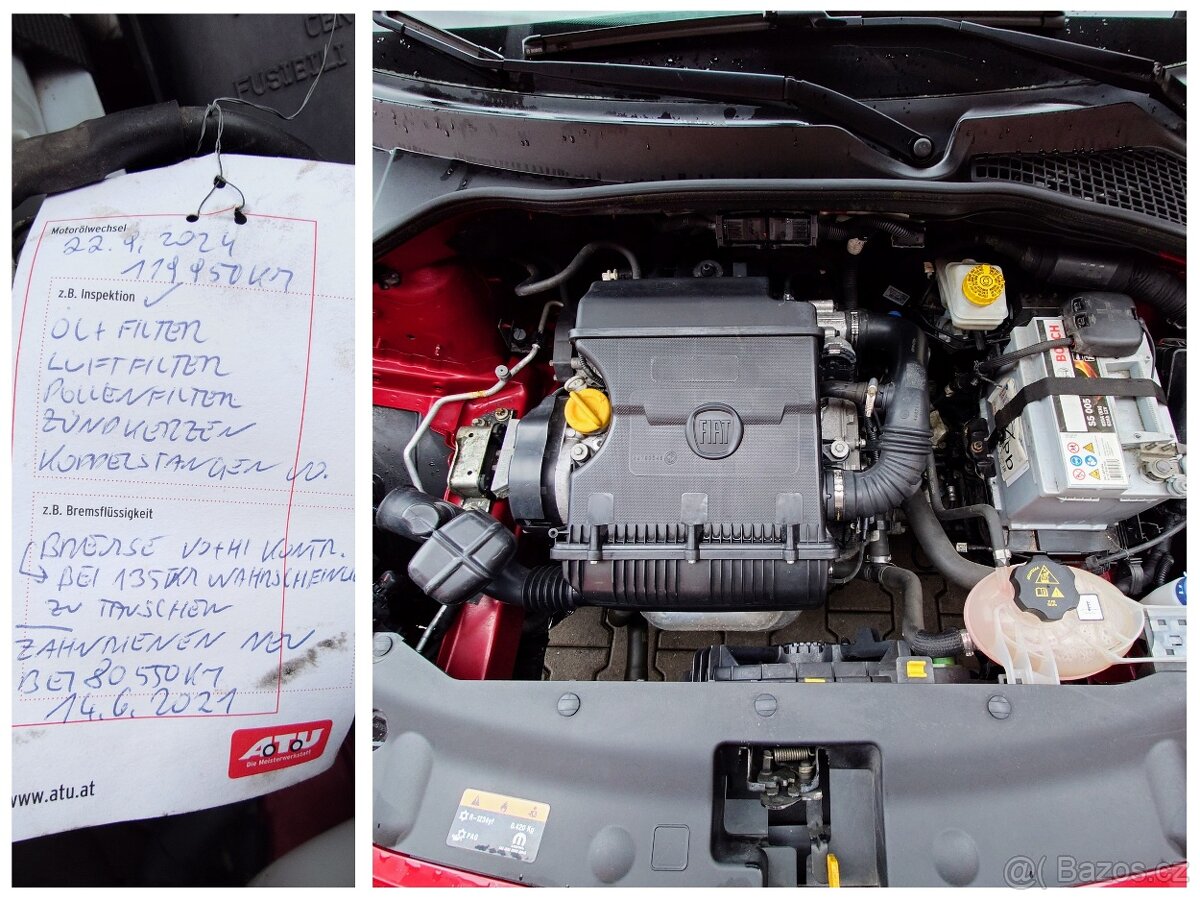 CEN
FUSIBILI
Motorölwechsel
22. 9. 2024
119 950 KM
z.B. Inspektion ✓
ÖL + FILTER
LUFTFILTER
POLLENFILTER
ZÜNDKERZEN
KOPPELSTANGEN
z.B. Bremsflüssigkeit
BREMSE VO+HI KONTR.
BEI 135TKM WAHRSCHEINL
ZU TAUSCHEN
ZAHNRIEMEN NEU
BEI 80 550 KM
14. 6. 2021
ATU
Die Meisterwerkstatt
www.atu.at
FIAT
BOSCH
S5 005
R-1234yf
0.420 Kg
PAG
@( Bazos.cz